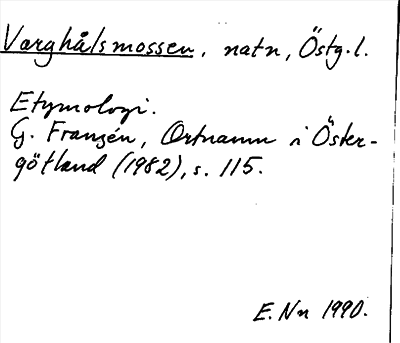 Varghålsmossen, natn, Östg.l.
Etymologi.
G. Franzén, Ortnamn i Öster-
götland (1982), s. 115.
E. Nn 1990.